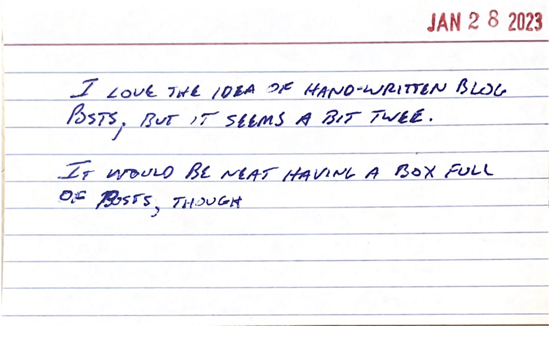 JAN 28 2023
I LOVE THE IDEA OF HAND-WRITTEN BLOG
POSTS, BUT IT SEEMS A BIT TWEE.
IT WOULD BE NEAT HAVING A BOX FULL
OF POSTS, THOUGH